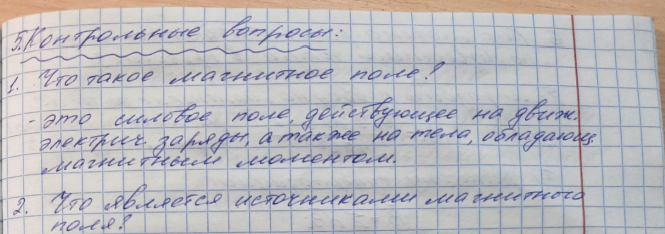 5. Контрольные вопросы:
1. Что такое магнитное поле?
- это силовое поле, действующее на движ.
электрич. заряды, а также на тела, обладающ.
магнитным моментом.
2. Что является источниками магнитного
поля?